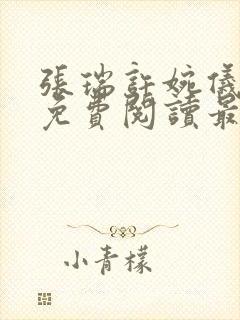 張瑞許婉儀
免費閱讀最
小青檬